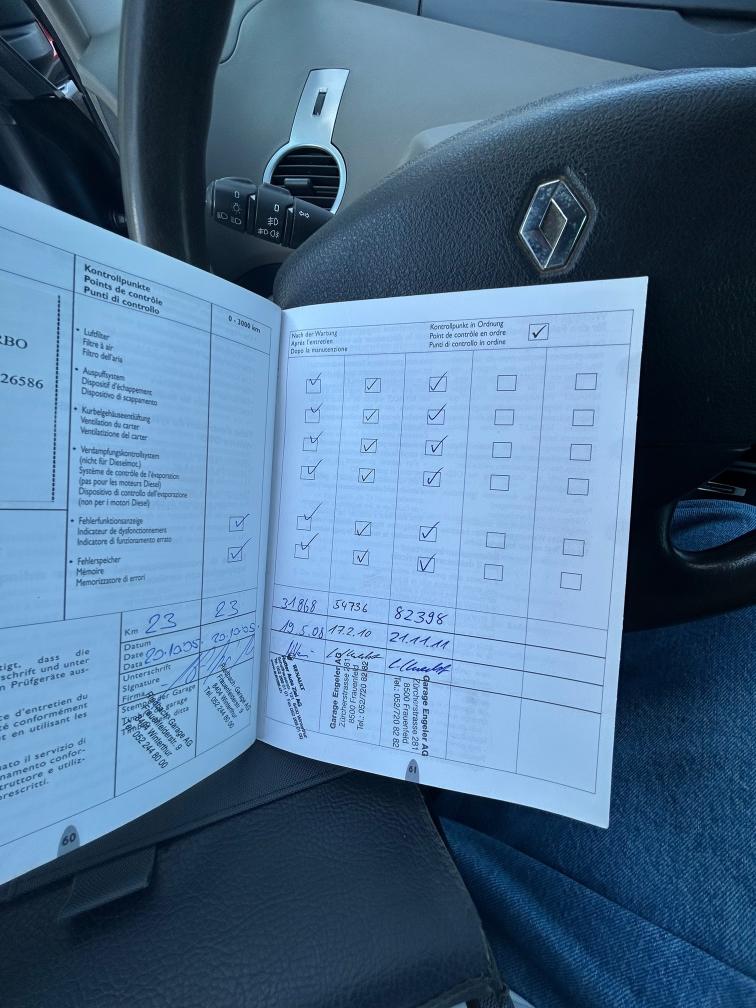 RBO
26586
Kontrollpunkte
Points de contrôle
Punti di controllo
0 - 3000 km
• Luftfilter
Filtre à air
Filtro dell'aria
• Auspuffsystem
Dispositif d'échappement
Dispositivo di scappamento
• Kurbelgehäuseentlüftung
Ventilation du carter
Ventilatizione del carter
• Verdampfungskontrollsystem
(nicht für Dieselmot.)
Système de contrôle de l'évaporation
(pas pour les moteurs Diesel)
Dispositivo di controllo dell'evaporazione
(non per i motori Diesel)
• Fehlerfunktionsanzeige
Indicateur de dysfonctionnement
Indicatore di funzionamento errato
• Fehlerspeicher
Mémoire
Memorizzatore di errori
Km 23 23
Datum
Date 20.10.05 20.10.05
Data
Unterschrift
Signature
Firma
Garage AG
Frauenfelderstr. 9
8404 Winterthur
Tel. 052 244 80 00
tigt, dass die
schrift und unter
n Prüfgeräte aus-
ce d'entretien du
té conformément
t en utilisant les
nato il servizio di
namento confor-
truttore e utiliz-
prescritti.
60
Nach der Wartung
Après l'entretien
Dopo la manutenzione
Kontrollpunkt in Ordnung
Point de contrôle en ordre
Punti di controllo in ordine
31868 54736 82398
19.5.08 17.2.10 21.11.11
RENAULT
Garage Engeler AG
Zürcherstrasse 281
8500 Frauenfeld
Tel.: 052/720 82 82
Garage Engeler AG
Zürcherstrasse 281
8500 Frauenfeld
Tel.: 052/720 82 82
61